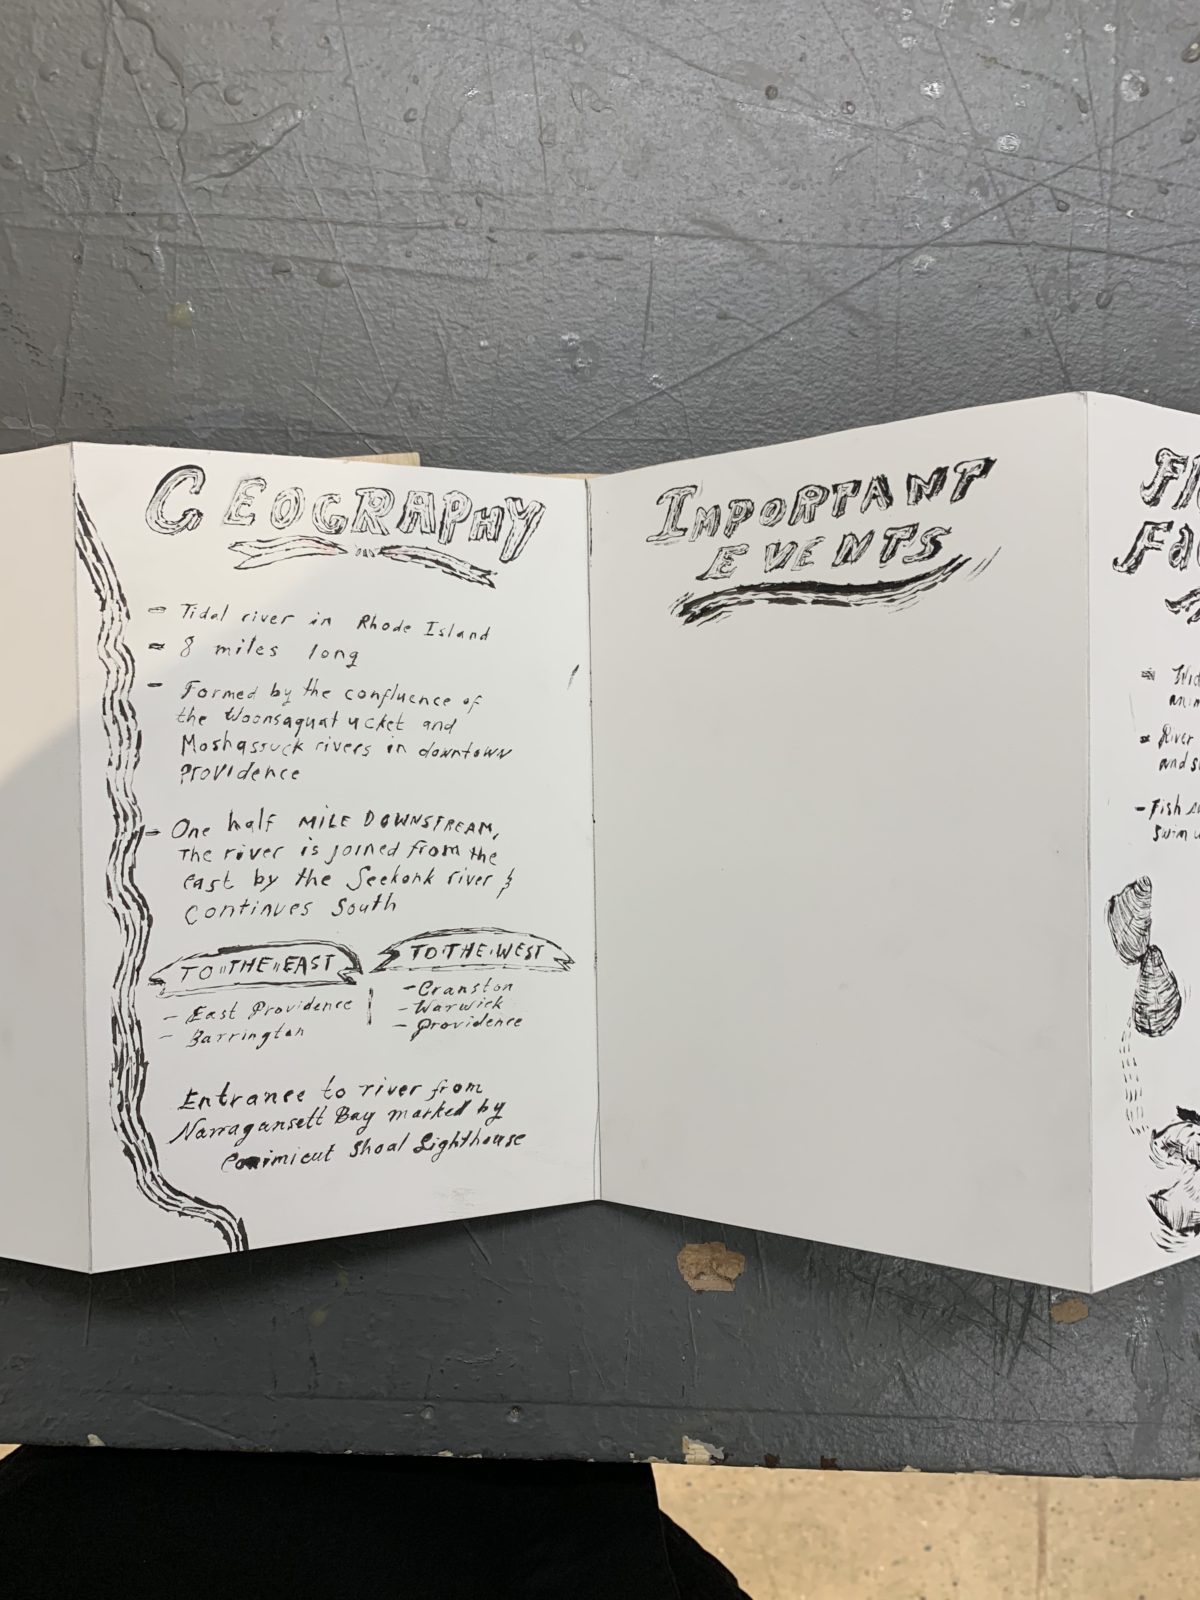 GEOGRAPHY
- Tidal river in Rhode Island
- 8 miles long
- Formed by the confluence of
the Woonsaquatucket and
Moshassuck rivers in downtown
Providence
- One half MILE DOWNSTREAM,
The river is joined from the
east by the Seekonk river &
CONTINUES South
TO THE EAST
- East Providence
- Barrington
TO THE WEST
- Cranston
- Warwick
- Providence
Entrance to river from
Narragansett Bay marked by
Conimicut Shoal Lighthouse
IMPORTANT
EVENTS
- River
- Fish
swim